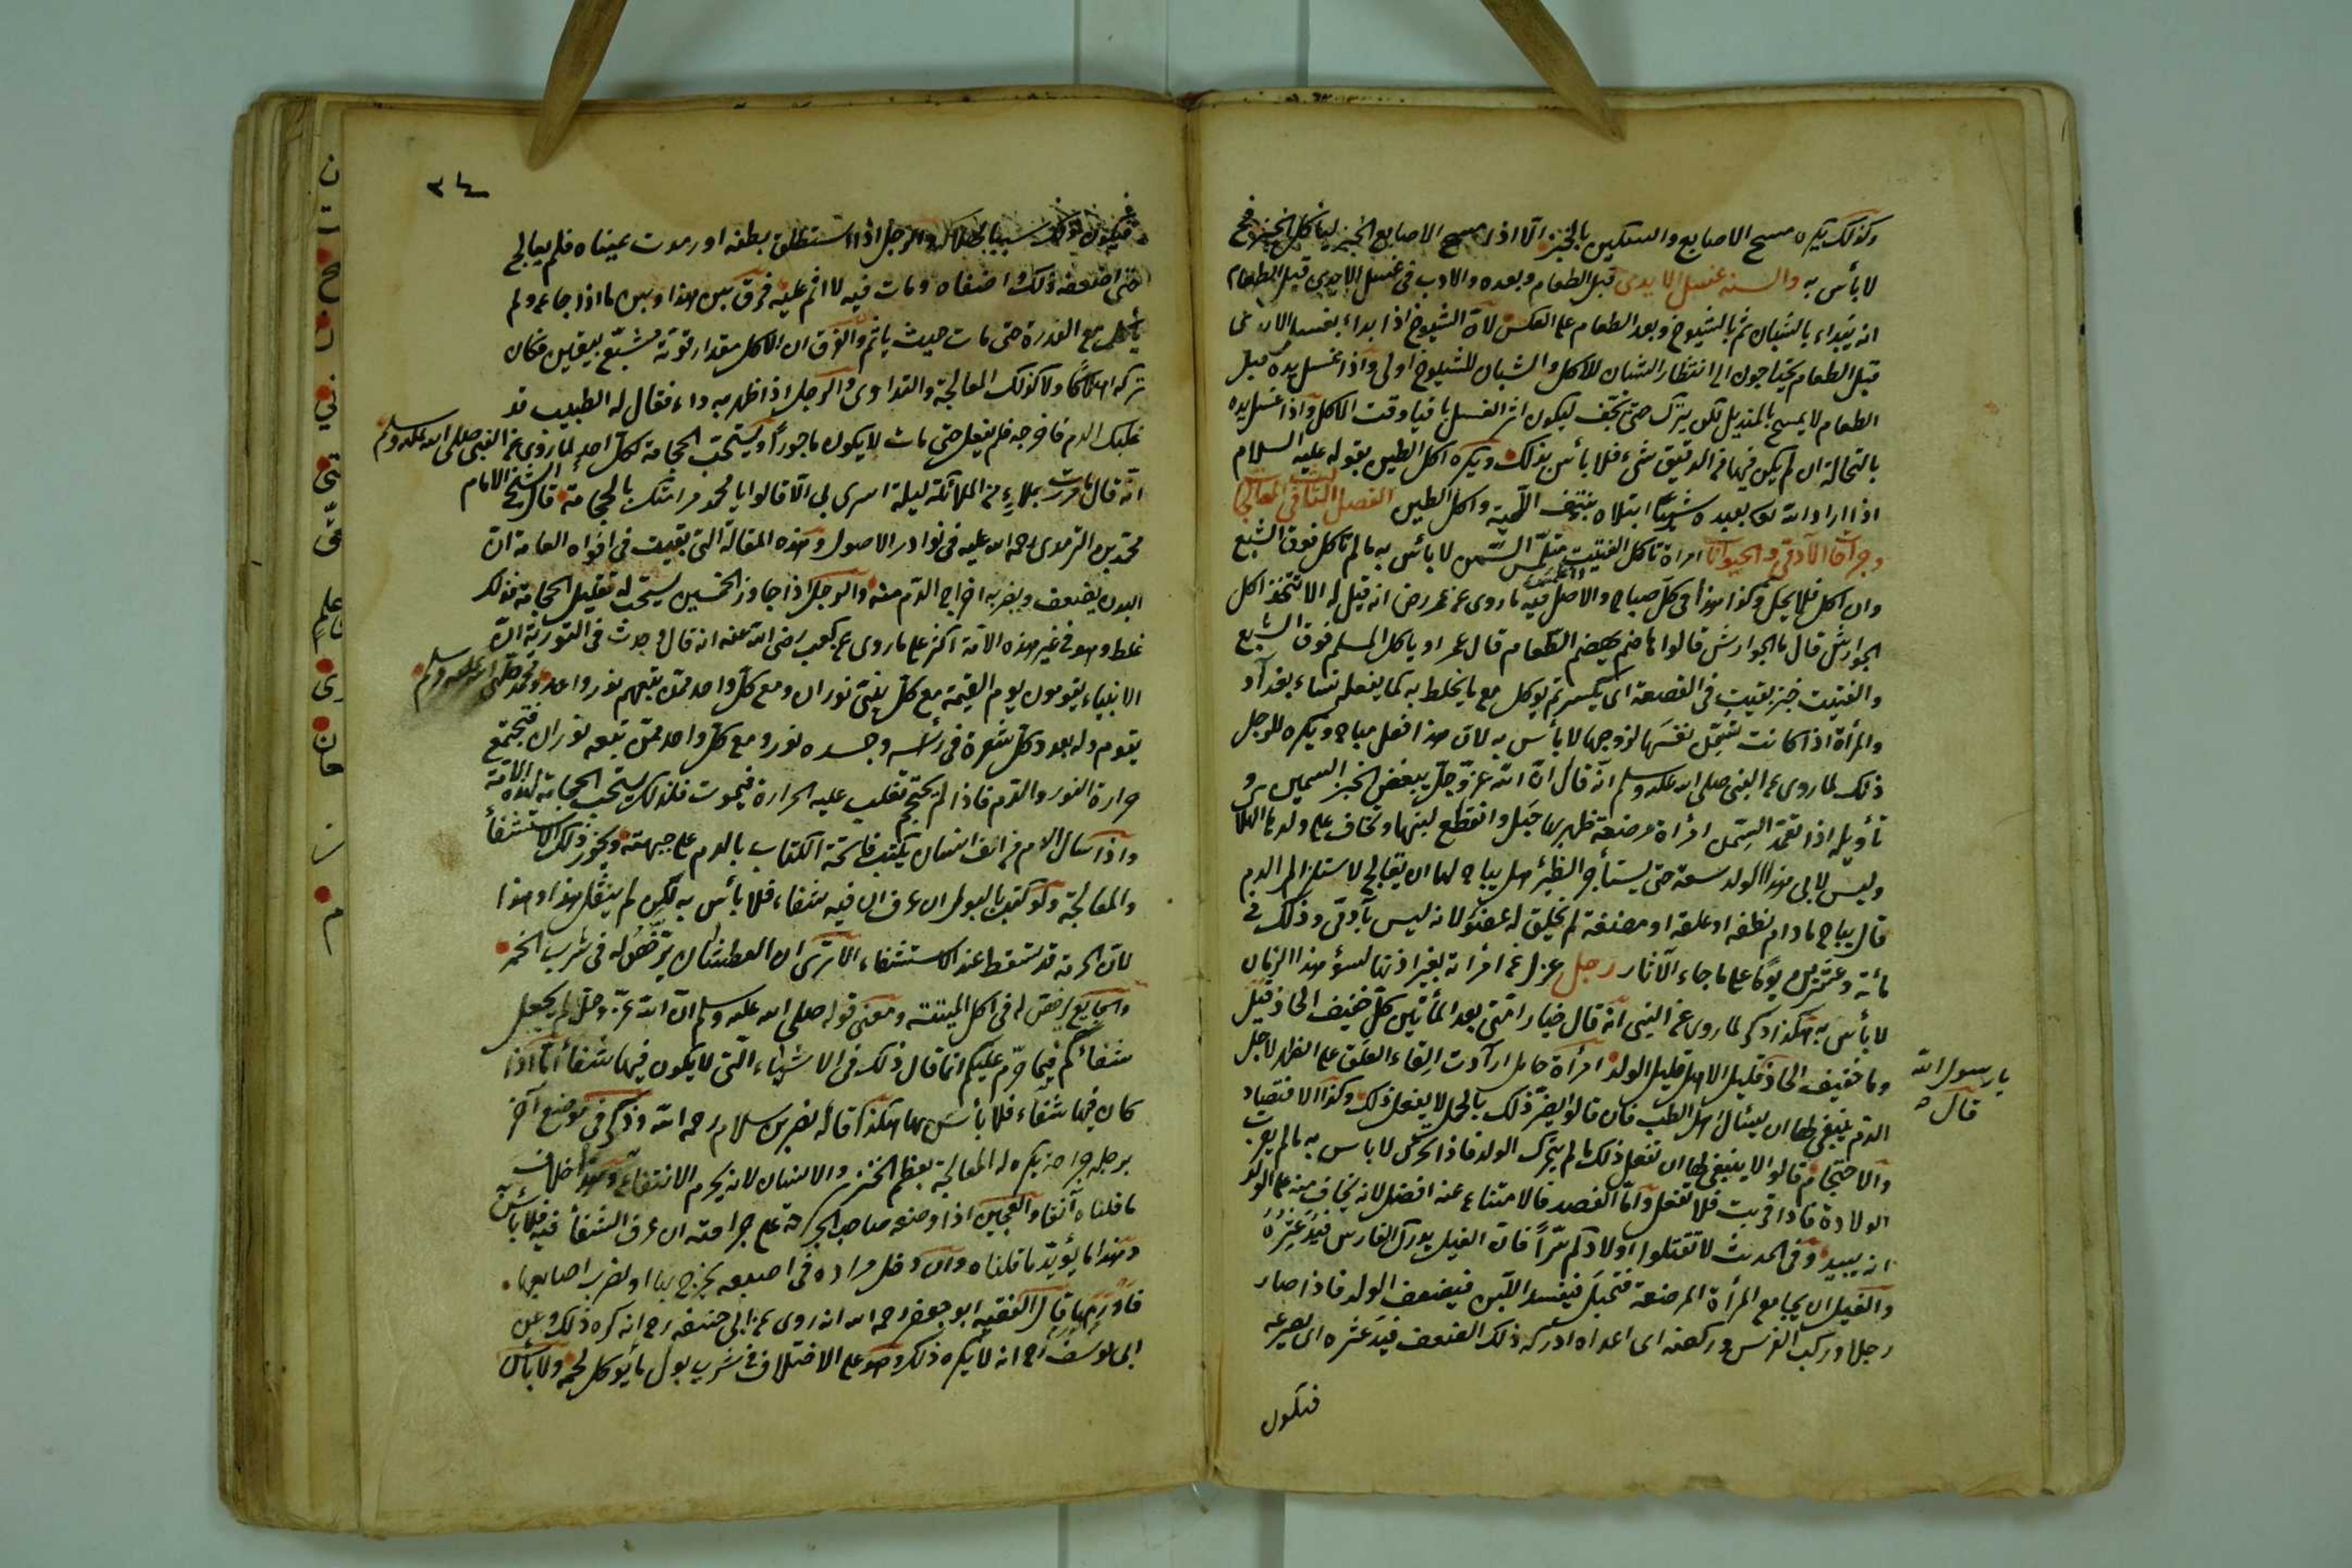 وكذلك يكره مسح الاصابع والسكين بالخبز الا اذا مسح الاصابع بالخبز ليأكل الخبز فح
لا بأس به والسنة غسل الايدى قبل الطعام وبعده والادب فى غسل الايدى قبل الطعام
انه يبداء بالشبان ثم بالشيوخ وبعد الطعام على العكس لان الشيوخ اذا بداء بغسل
قبل الطعام يحتاجون الى انتظار الشبان للاكل والشبان للشيوخ اولى واذا غسل يده قبل
الطعام لا يمسح بالمنديل لكن يترك حتى يجف ليكون اثر الغسل باقيا وقت الاكل واذا غسل يده
بالنخالة ان لم يكن فيها من الدقيق شيء فلا بأس بذلك ويكره اكل الطين بقوله عليه السلام
اذا اراد الله بعبده شيئا ابتلاه بنتف اللحية واكل الطين الفصل الثالث فى المعالجات
وجراحات الآدمى والحيوانات امراة تأكل الفتيت تلتمس السمن لا بأس به ما لم تأكل فوق الشبع
وان اكل فلا يحل وكذا هذا فى كل صباح والاصل فيه ما روى عن عمر رض انه قيل له الا نتخذ لك
الجوارش قال ما الجوارش قالوا هاضم يهضم الطعام قال عمر او يأكل المسلم فوق الشبع
والفتيت خبز يفتت فى القصعة اى يكسر ثم يوكل مع ما يخلط به كما يفعله نساء بغداد
والمرأة اذا كانت تسمن نفسها لزوجها لا بأس به لان هذا فعل مباح ويكره للرجل
ذلك لما روى عن النبى صلى الله عليه وسلم انه قال ان الله عز وجل يبغض الحبر السمين و
تأويله اذا تعمد السمن امرأة مرضعة ظهر بها حبل وانقطع لبنها وتخاف على ولدها الهلاك
وليس لابى هذا الولد سعة حتى يستأجر الظئر هل يباح لها ان يعالج لاستنزال الدم
قال يباح ما دام نطفة او علقة او مضغة لم يخلق له عضو لانه ليس بآدمى وذلك فى
مائة وعشرين يوما على ما جاء الآثار رجل عزل عن امرأته بغير اذنها لسوء هذا الزمان
لا بأس به هكذا ذكر لما روى عن النبى انه قال خيار امتى بعد المأتين كل خفيف الحاذ قيل
يا رسول الله
وما خفيف الحاذ قال قليل الاهل قليل الولد امرأة حامل ارادت القاء العلق على الظهر لاجل
الدم ينبغى لها ان يسأل اهل الطب فان قالوا يضر ذلك بالحمل لا يفعل ذلك وكذا الافتصاد
والاحتجام قالوا لا ينبغى لها ان تفعل ذلك ما لم يتحرك الولد فاذا تحرك لا باس به ما لم يقرب
الولادة فاذا قربت فلا تفعل واما الفصد فالامتناع عنه افضل لانه يخاف منه على الولد
وفى الحديث لا تقتلوا اولادكم سرا فان الغيل يدرك الفارس فيدعثره
والغيل ان يجامع المرأة المرضعة فتحبل فيفسد اللبن فيضعف الولد فاذا صار
رجلا وركب الفرس وركضه الى اعداه ادركه ذلك الضعف فيدعثره اى يصرعه
فتكون
٣٤
فيكون ذلك سببا لهلاكه والرجل اذا استطلق بطنه او رمدت عيناه فلم يعالج
حتى اضعفه ذلك واضناه ومات فيه لا اثم عليه فرق بين هذا وبين ما اذا جاع ولم
يأكل مع القدرة حتى مات حيث يأثم والفرق ان الاكل مقدار قوته مشبع بيقين فكان
تركه اهلاكا ولا كذلك المعالجة والتداوى والرجل اذا ظهر به داء فقال له الطبيب قد
غلبك الدم فاخرجه فلم يفعل حتى مات لا يكون مأجورا ويستحب الحجامة لكل احد لما روى عن النبى صلى الله عليه وسلم
انه قال ما مررت بملاء من الملائكة ليلة اسرى بى الا قالوا يا محمد مر امتك بالحجامة قال الشيخ الامام
محمد بن الترمذى رحمة الله عليه فى نوادر الاصول وهذه المقالة التى بقيت فى افواه العامة ان
البدن يضعف ويضر به اخراج الدم منه والرجل اذا جاوز الخمسين يستحب له تقليل الحجامة فذلك
غلط وهو فى غير هذه الامة اكثر على ما روى عن كعب رضى الله عنه انه قال وجدت فى التورية ان
الانبياء يقومون يوم القيمة مع كل نبى نوران ومع كل واحد ممن يتبعهم نور واحد ومحمد صلى الله عليه وسلم
يقوم وله بعدد كل شعرة فى رأسه وجسده نور ومع كل واحد ممن تبعه نوران فتجتمع
حرارة النور والدم فاذا لم يحتجم تغلب عليه الحرارة فيموت فلذلك يستحب الحجامة لهذه الامة
واذا سال الدم من انف انسان يكتب فاتحة الكتاب بالدم على جبهته ويجوز ذلك للاستشفاء
والمعالجة ولو كتب بالبول ان عرف ان فيه شفاء فلا بأس به لكن لم ينقل هذا وهذا
لان الحرمة قد تسقط عند الاستشفاء الا ترى ان العطشان يرخص له فى شرب الخمر
والجايع يرخص له فى اكل الميتة ومعنى قوله صلى الله عليه وسلم ان الله عز وجل لم يجعل
شفائكم فيما حرم عليكم انما قال ذلك فى الاشياء التى لا يكون فيها شفاء اما اذا
كان فيها شفاء فلا بأس بها هكذا قاله نصر بن سلام رحمه الله وذكر فى موضع آخر
برجله جراحة يكره له المعالجة بعظم الخنزير والانسان لانه يحرم الانتفاع به وهذا خلاف
ما قلناه آنفا والعجين اذا وضعه صاحب الجراحة على جراحته ان عرف الشفاء فيه فلا بأس
وهذا ما يؤيد ما قلناه وان دخل مرارة فى اصبعه
قال الفقيه ابو جعفر رحمه الله انه روى عن ابى حنيفة رح انه كره ذلك وعن
ابى يوسف رح انه لا يكره ذلك وهو على الاختلاف فى شرب بول ما يؤكل لحمه ولا بأس